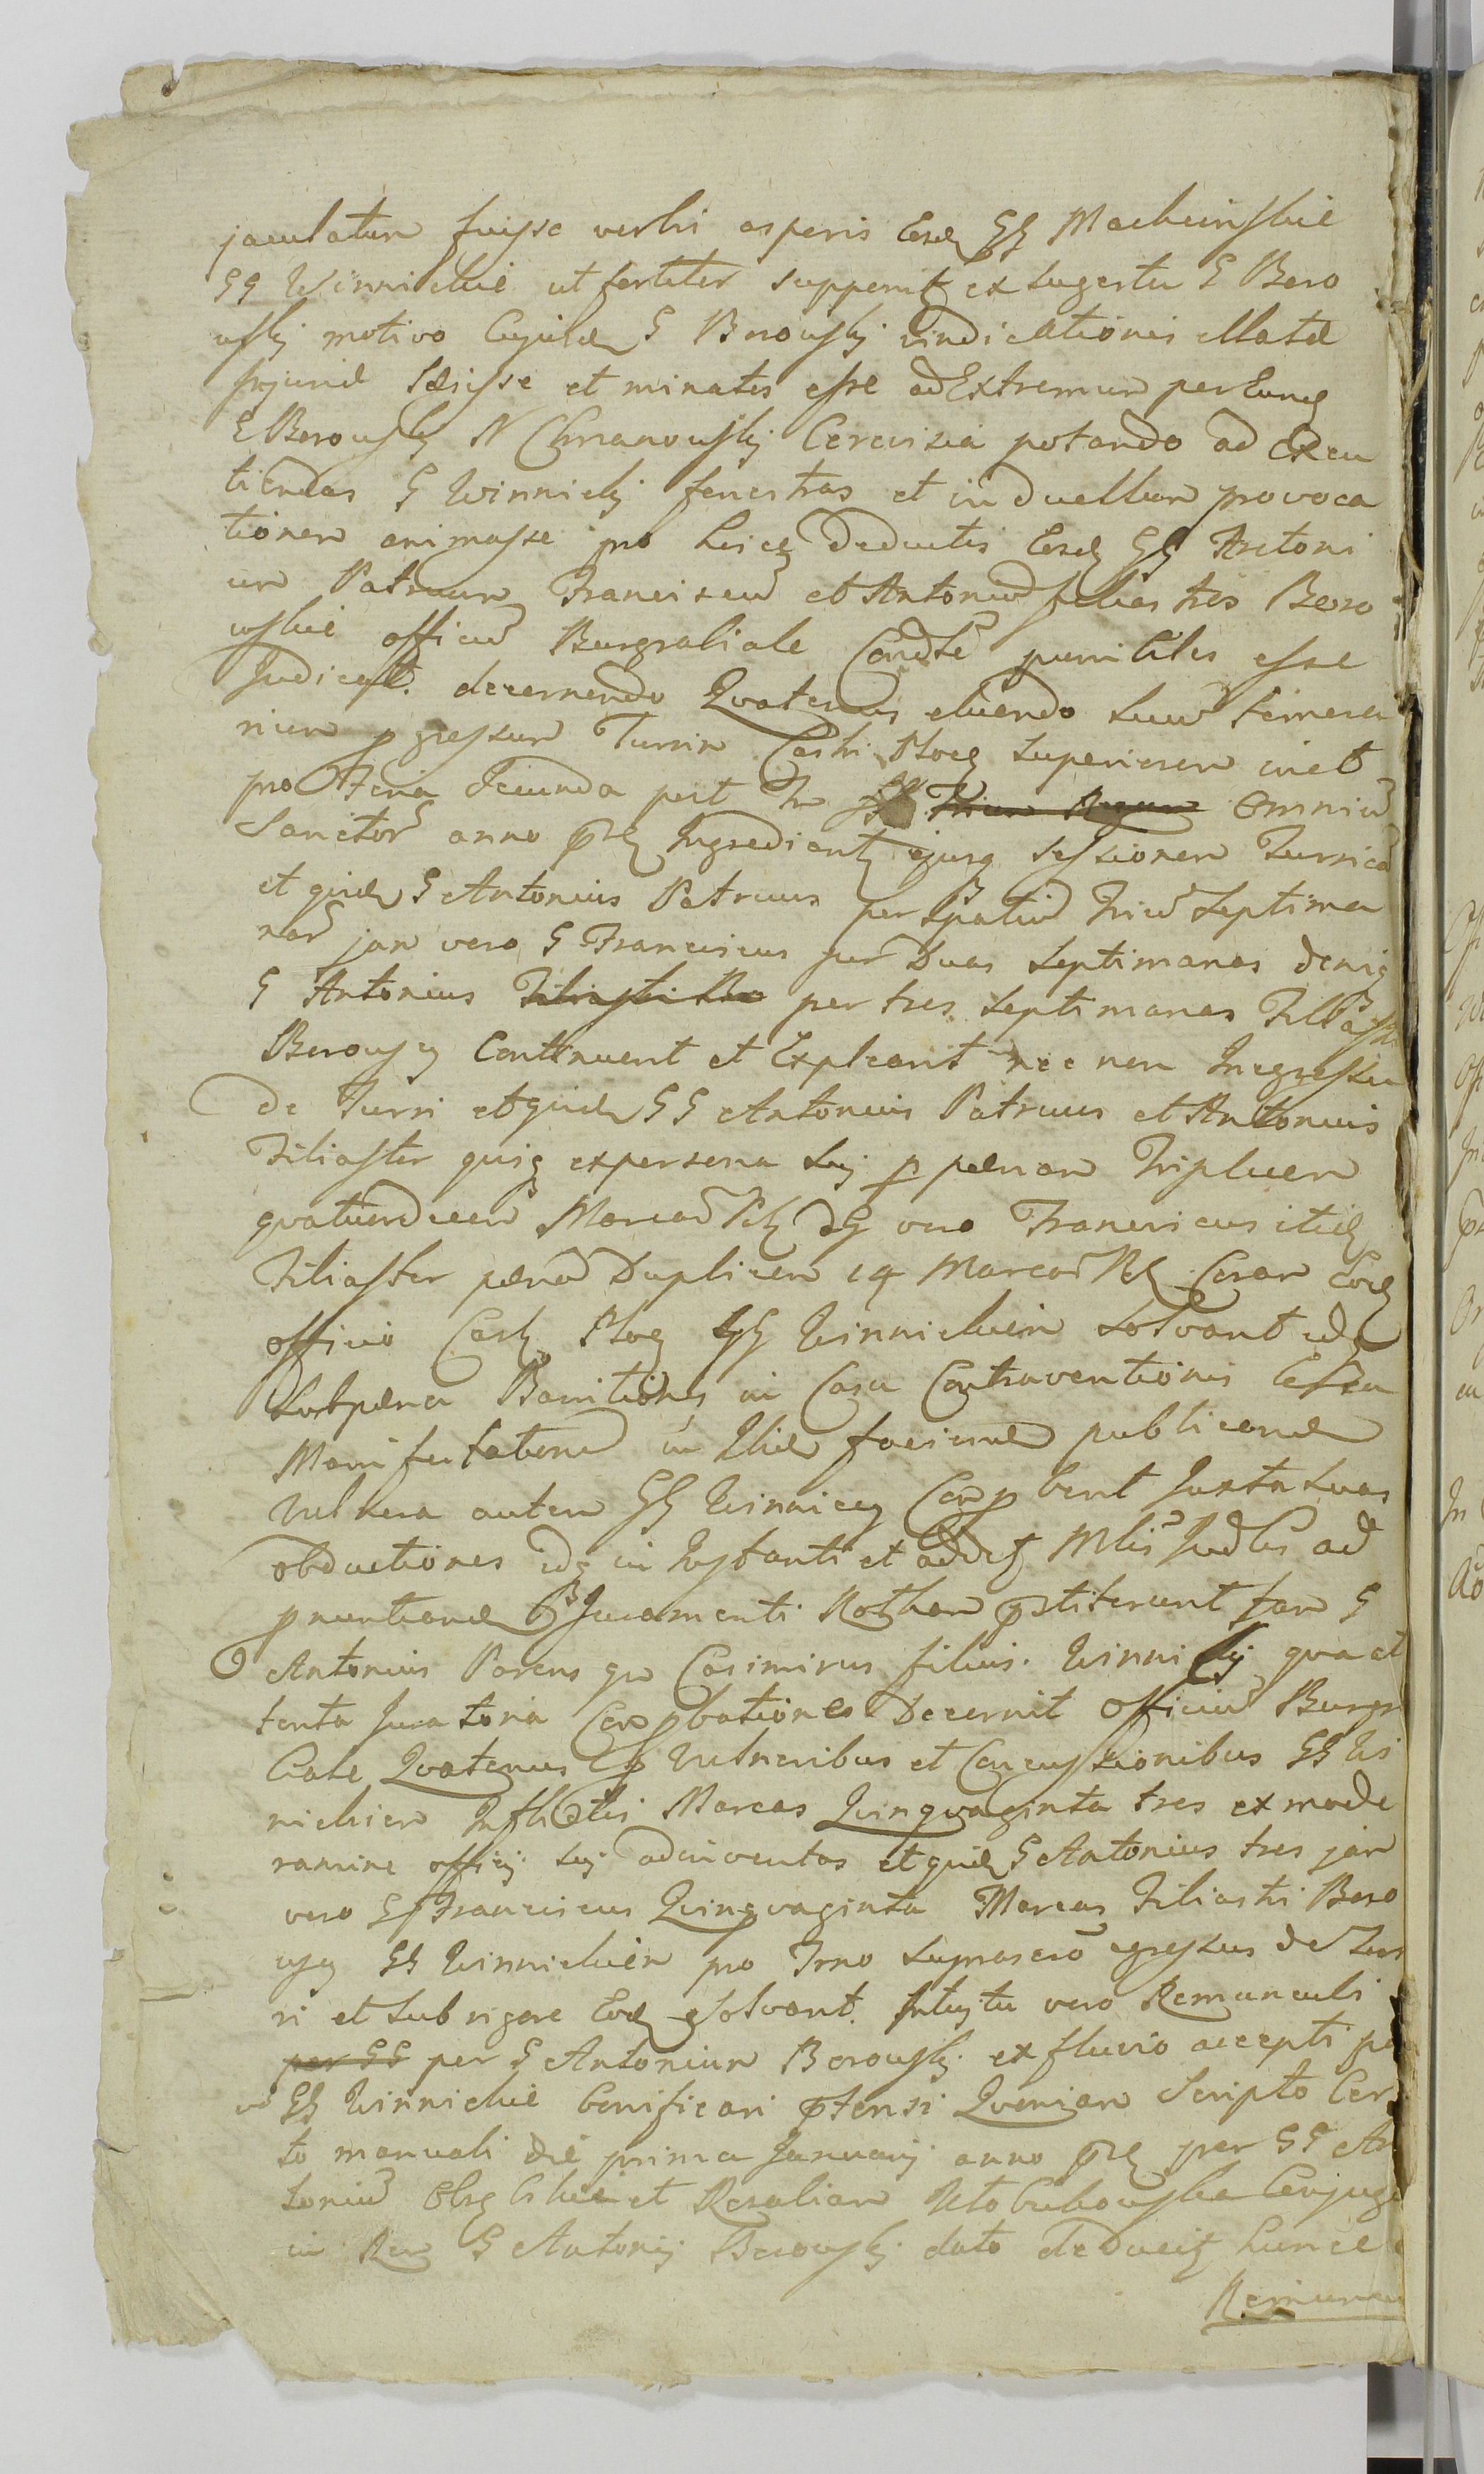 jaculatum fuisse verbi asperis Eosd GG Machcinskie
GG Winnickie ut fertiter suppenit ex sugestu G Boro
wskj motivo Cujusd G Borowskj vindicationis illatæ
Injuriæ sæiisse et minatos esse ad Extremum per Eund
G Borowskj N Chmanowskj Cerevisia potando ad Excu
tiendas G Winnickj fenestras et in duellum provoca
tionem animasse pro hisce deductis Eosd GG Antoni
um Patruum Franciscu et Antoniu filiastros Boro
wskie officiu Burgrabiale Condte punibiles esse
Judicast. decernendo Quatenus eluendo suum temera
rium pgressum Turrim Castri Ploc superiorem in et
pro Feria Secunda post Fm Trium Regum Omniu
Sanctor anno pt Ingrediant ejusq sessionem Turricam
et quid G Antonius Patruus per spatiu triu Septima
nar jam vero G Franciscus per duas Septimanas deniq
G Antonius Filiastri Bo per tres Septimanas Filiastri
Borowscy Continuent et Expleant nec non In egressu
de Turri et quid GG Antonius Patruus et Antonius
Filiaster quisq ex persona suj p pænam Triplicem
quatuordecim Marcar Pol G vero Franciscus itid
Filiaster pænam Duplicem 14 Marcar Pol Coram Eod
officio Cast Ploc GG Winnickim solvant idq
Sub pæna Bannitionis in Casu Contraventionis
Manifestatione in Illud faciend publicand
Vulnera autem GG Winniccy Comp bent Juxta suas
obductiones idq in Instanti et addict Mlis Judlis ad
pnuntiand Juramenti Rotham pstiterunt tam G
Antonius Parens qm Casimirus filius Winniccy qua at
tenta Juratoria Compbationes Decernit Officiu Burgr
biale Quatenus p Vulneribus et Concussionibus GG Wi
nickim Inflictis Marcas Quinquaginta tres ex mode
ramine officij suj adinventas et quid G Antonius tres jam
vero G Franciscus Quinquaginta Marcas Filiastri Boro
wscy GG Winnickim pro Trno suprascro egressus de Tur
ri et sub rigore Eod exsolvant. Intuitu vero Remunculi
per GG per G Antonium Borowskj ex fluvio accepti
GG Winnickie bonificari ptensi Quoniam Scripto Cer
to manuali die prima Januarij anno pt per GG An
toniu et Rosaliam Conjuge
in Rem G Antonij Borowskj dato deducit hunce
Remuncu